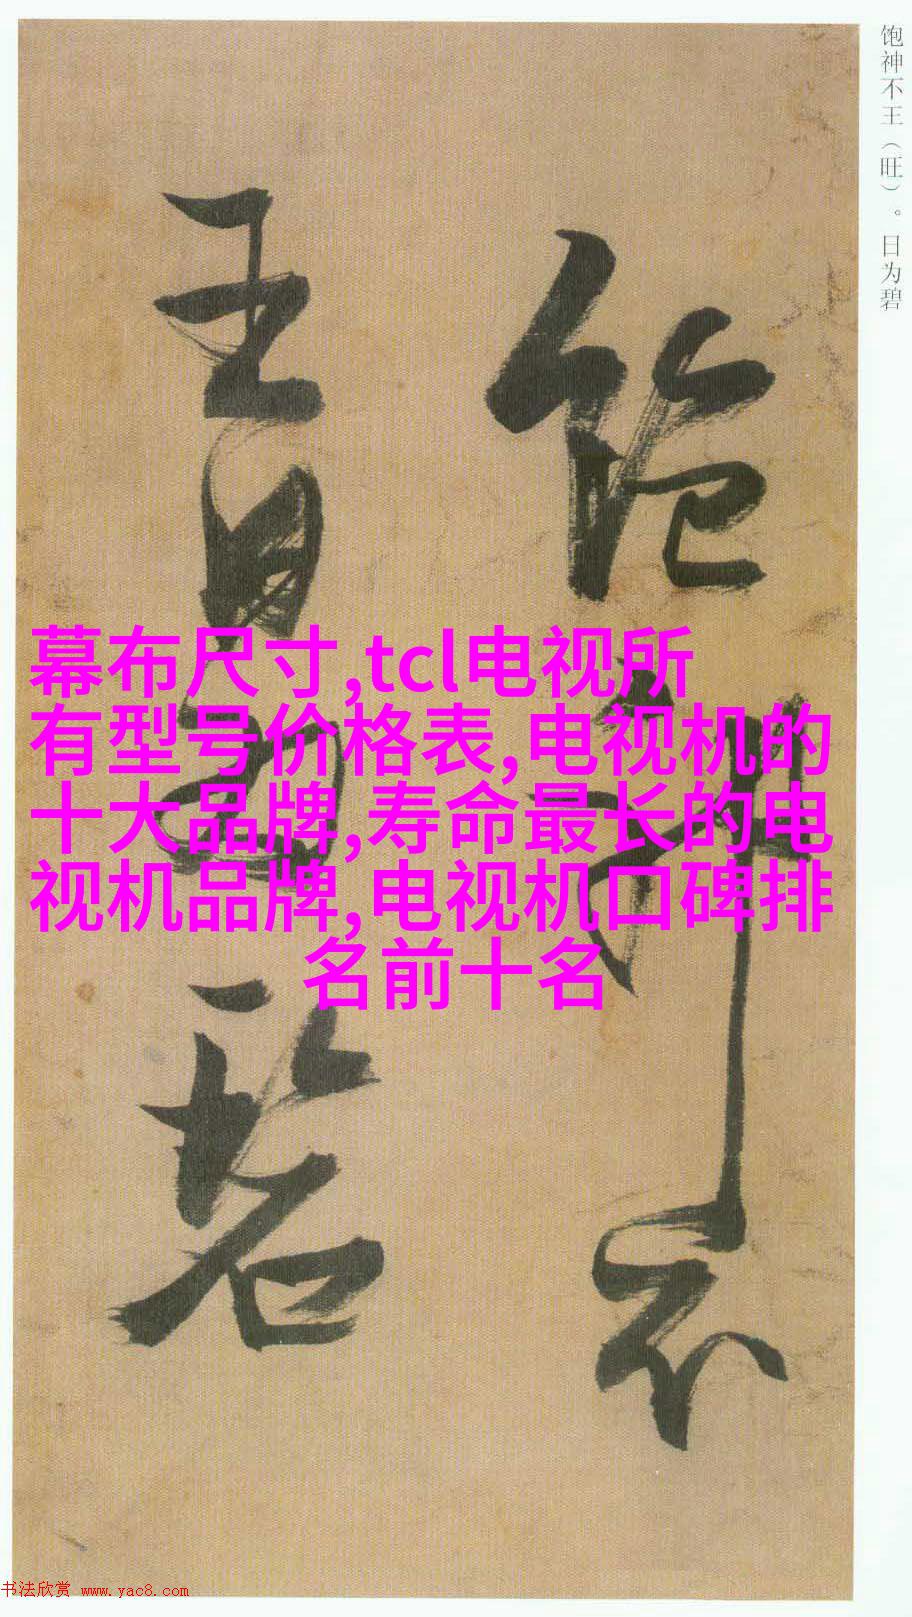 饱神不王（旺）。日为碧
饱神不
王日为碧
幕布尺寸,tcl电视所
有型号价格表,电视机的
十大品牌,寿命最长的电
视机品牌,电视机口碑排
名前十名
书法欣赏 www.yac8.com